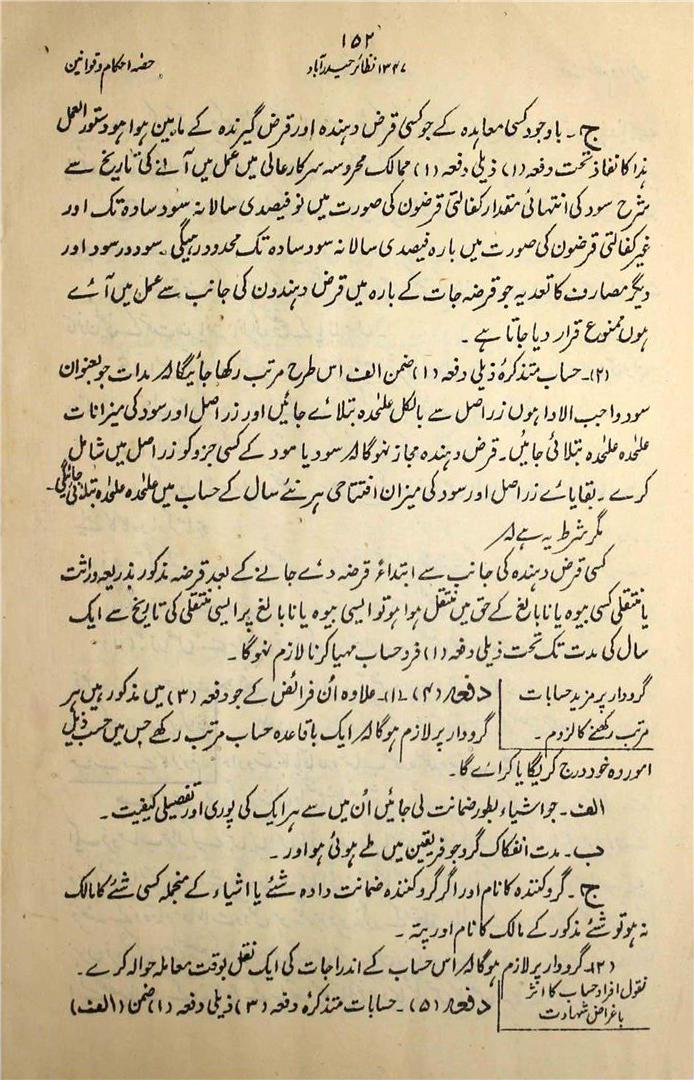 ۱۵۲
۱۳۴۷ نظائر حیدرآباد
حصہ احکام و قوانین
ج ۔ باوجود کسی معاہدہ کے جو کسی قرض دہندہ اور قرض گیرندہ کے مابین ہوا ہو دستور العمل
ہذا کا نفاذ تحت دفعہ (۱) ذیلی دفعہ (۱) ممالک محروسہ سرکار عالی میں عمل میں آنے کی تاریخ سے
شرح سود کی انتہائی مقدار کفالتی قرضوں کی صورت میں نو فیصدی سالانہ سود سادہ تک اور
غیر کفالتی قرضوں کی صورت میں بارہ فیصدی سالانہ سود سادہ تک محدود رہیگی ۔ سود در سود اور
دیگر مصارف کا تعدیہ جو قرضہ جات کے بارہ میں قرض دہندوں کی جانب سے عمل میں آئے
ہوں ممنوع قرار دیا جاتا ہے ۔
(۲)۔ حساب متذکرۂ ذیلی دفعہ (۱) ضمن الف اس طرح مرتب رکھا جائیگا کہ مدات جو بعنوان
سود واجب الادا ہوں زر اصل سے بالکل علٰحدہ بتلائے جائیں اور زر اصل اور سود کی میزانات
علٰحدہ علٰحدہ بتلائی جائیں ۔ قرض دہندہ مجاز نہوگا کہ سود یا سود کے کسی جزو کو زر اصل میں شامل
کرے ۔ بقایائے زر اصل اور سود کی میزان افتتاحی ہر نئے سال کے حساب میں علٰحدہ علٰحدہ بتلائی جائیگی ۔
مگر شرط یہ ہے کہ
کسی قرض دہندہ کی جانب سے ابتداءً قرضہ دئے جانے کے بعد قرضہ مذکور بذریعہ وراثت
یا منتقلی کسی بیوہ یا نابالغ کے حق میں منتقل ہوا ہو تو ایسی بیوہ یا نابالغ پر ایسی منتقلی کی تاریخ سے ایک
سال کی مدت تک تحت ذیلی دفعہ (۱) فرد حساب مہیا کرنا لازم نہوگا ۔
گرودار پر مزید حسابات
مرتب رکھنے کا لزوم ۔
دفعہ (۴) ۔(۱)۔ علاوہ اُن فرائض کے جو دفعہ (۳) میں مذکور ہیں ہر
گرودار پر لازم ہوگا کہ ایک باقاعدہ حساب مرتب رکھے جس میں حسب ذیل
امور وہ خود درج کریگا یا کرائے گا ۔
الف ۔ جو اشیاء بطور ضمانت لی جائیں اُن میں سے ہر ایک کی پوری اور تفصیلی کیفیت ۔
ب ۔ مدت انفکاک گرو جو فریقین میں طے ہوئی ہو اور ۔
ج ۔ گروکنندہ کا نام اور اگر گروکنندہ ضمانت دادہ شئے یا اشیاء کے منجملہ کسی شئے کا مالک
نہ ہو تو شئے مذکور کے مالک کا نام اور پتہ ۔
(۲)۔ گرودار پر لازم ہوگا کہ اس حساب کے اندراجات کی ایک نقل بوقت معاملہ حوالہ کرے ۔
نقول افراد حساب کا اثر
باغراض شہادت
دفعہ (۵) ۔ حسابات متذکرۂ دفعہ (۳) ذیلی دفعہ (۱) ضمن (الف)